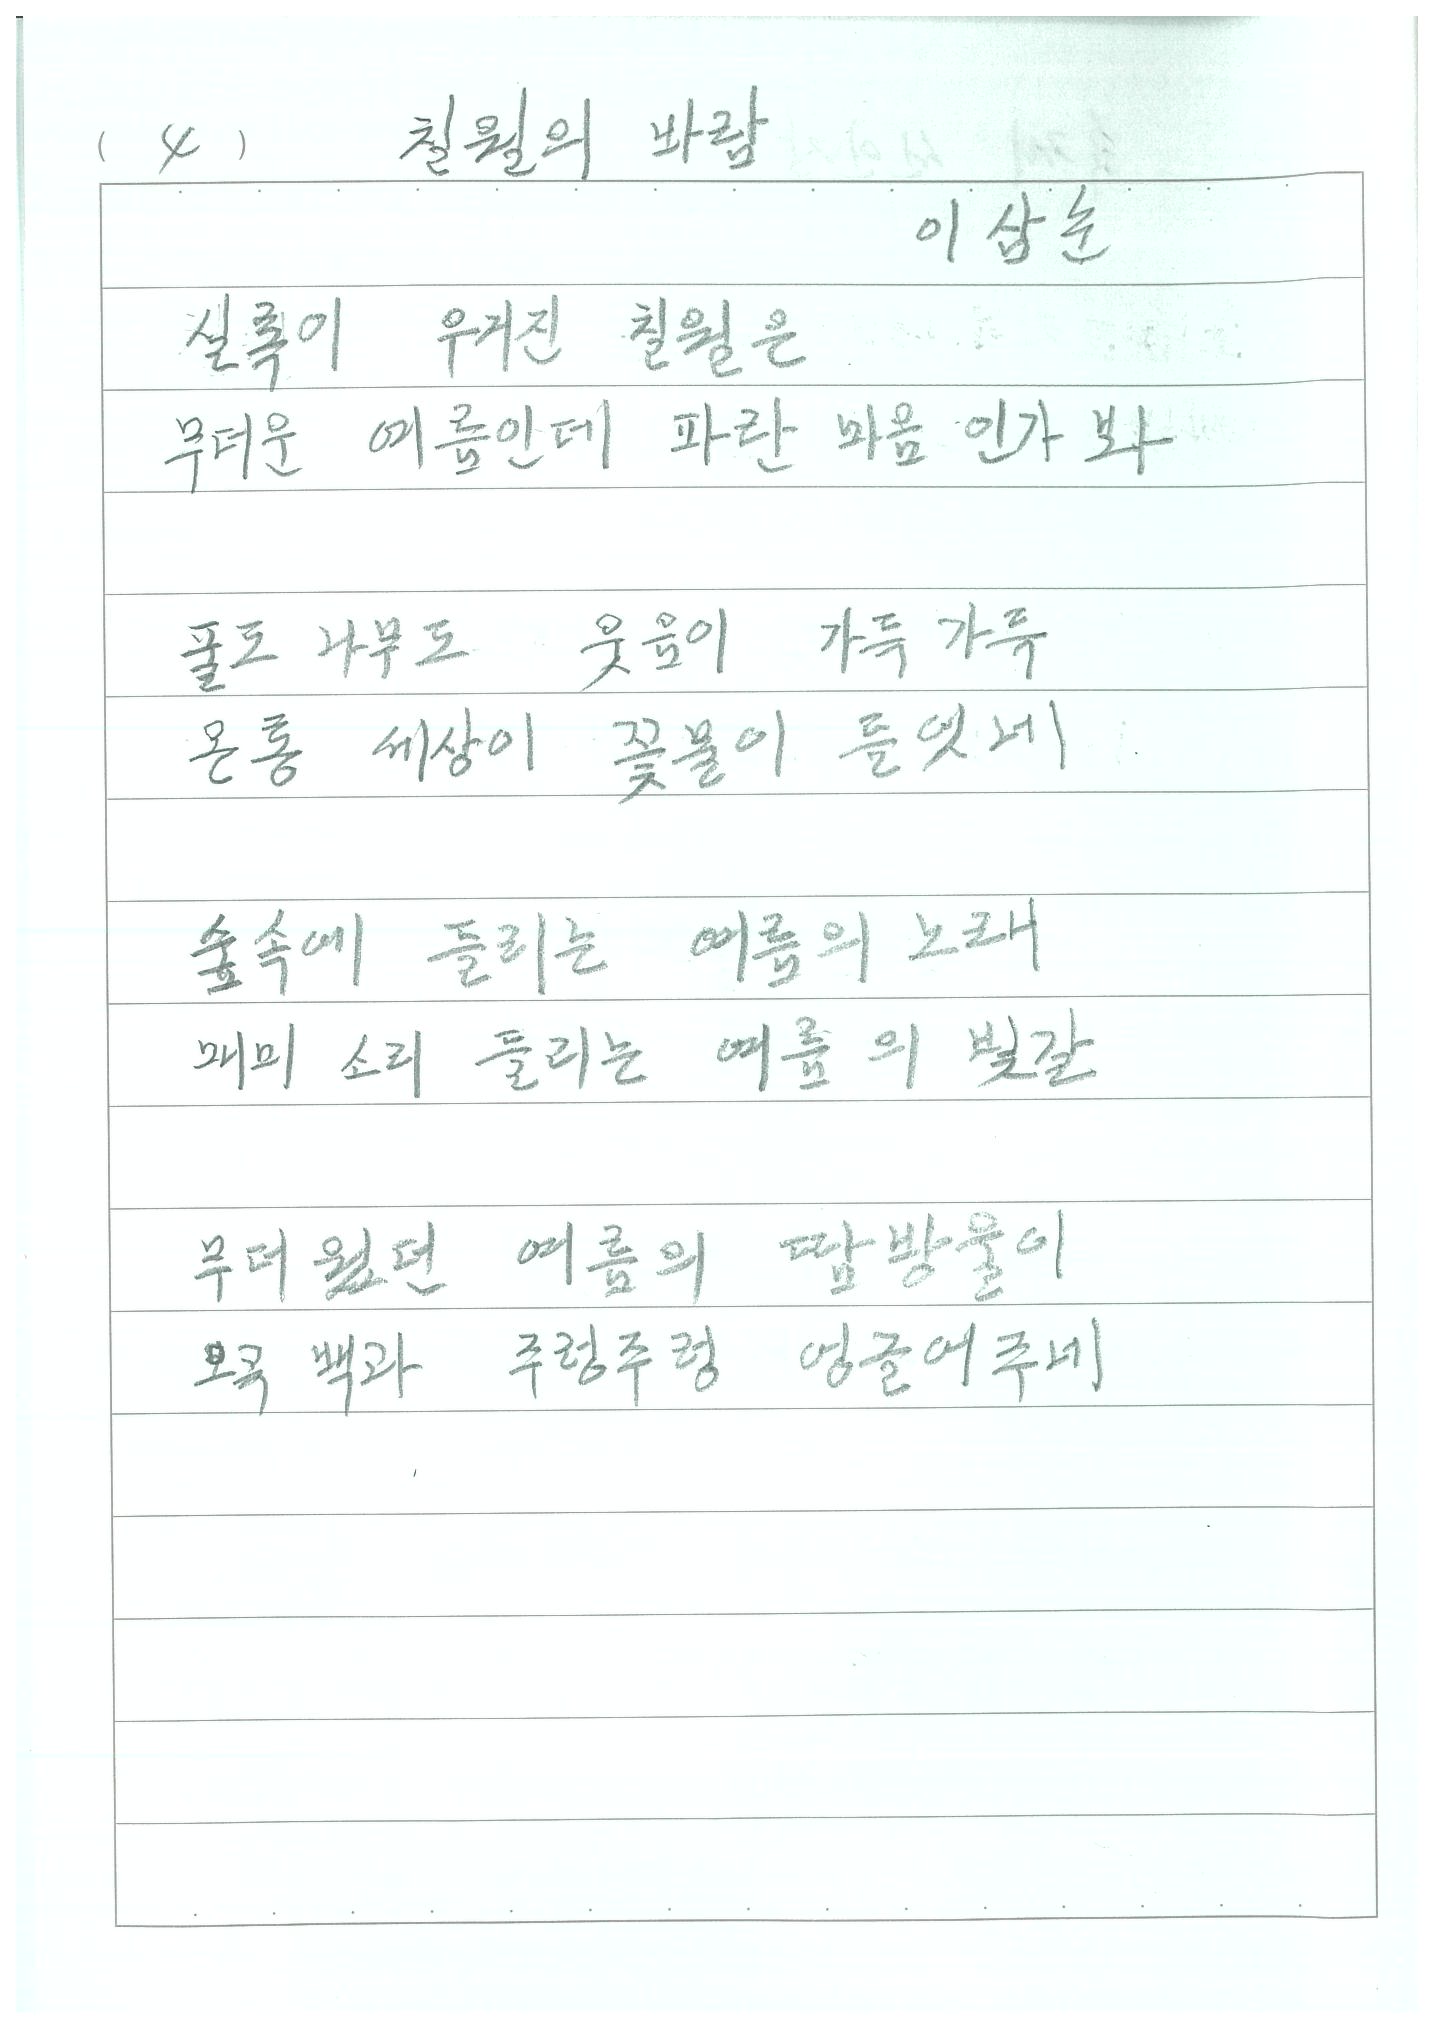 ( 4 ) 칠월의 바람
이삼순
실록이 우거진 칠월은
무더운 여름인데 파란 마음 인가 봐
풀도 나무도 웃음이 가득 가득
온통 세상이 꽃물이 들엿네
숲속에 들리는 여름의 노래
매미 소리 들리는 여름 의 빛갈
무더웠던 여름의 땀방울이
오곡 백과 주렁주렁 엉글어주네